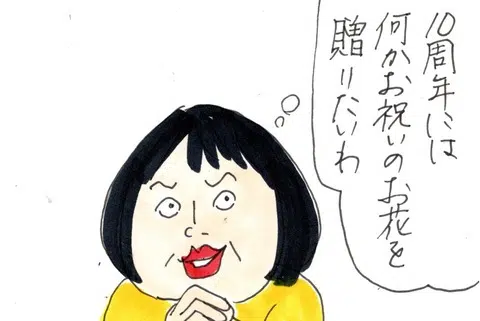 10周年には
何かお祝いのお花を
贈りたいわ